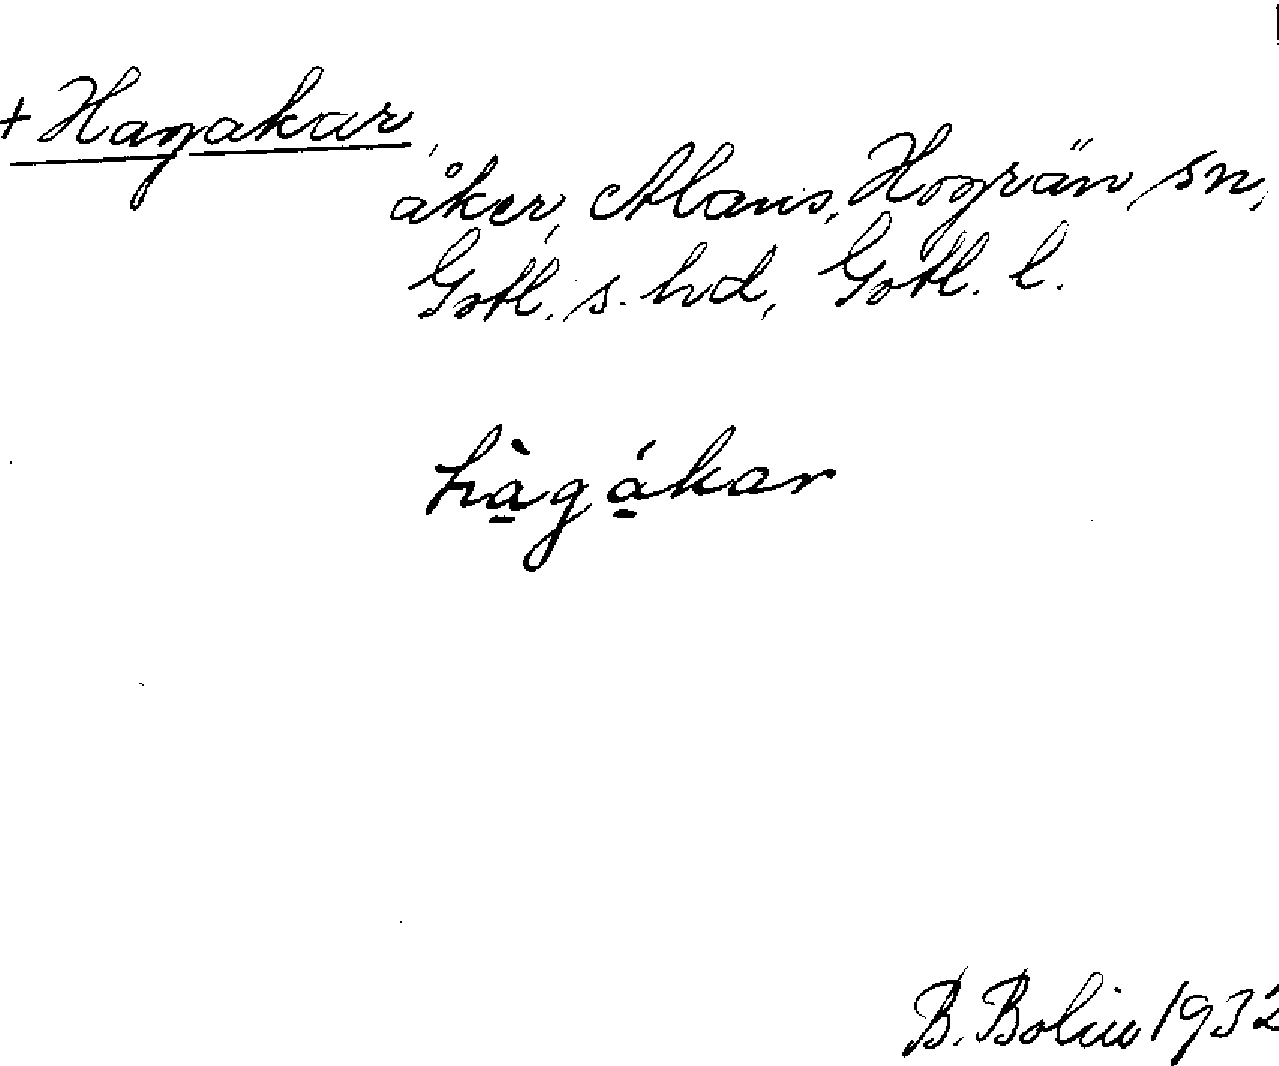 + Hagakar,
åker, Alans, Hogrän sn,
Gotl. s. hd, Gotl. l.
hà̱gá̱kar
B. Bolin 1932